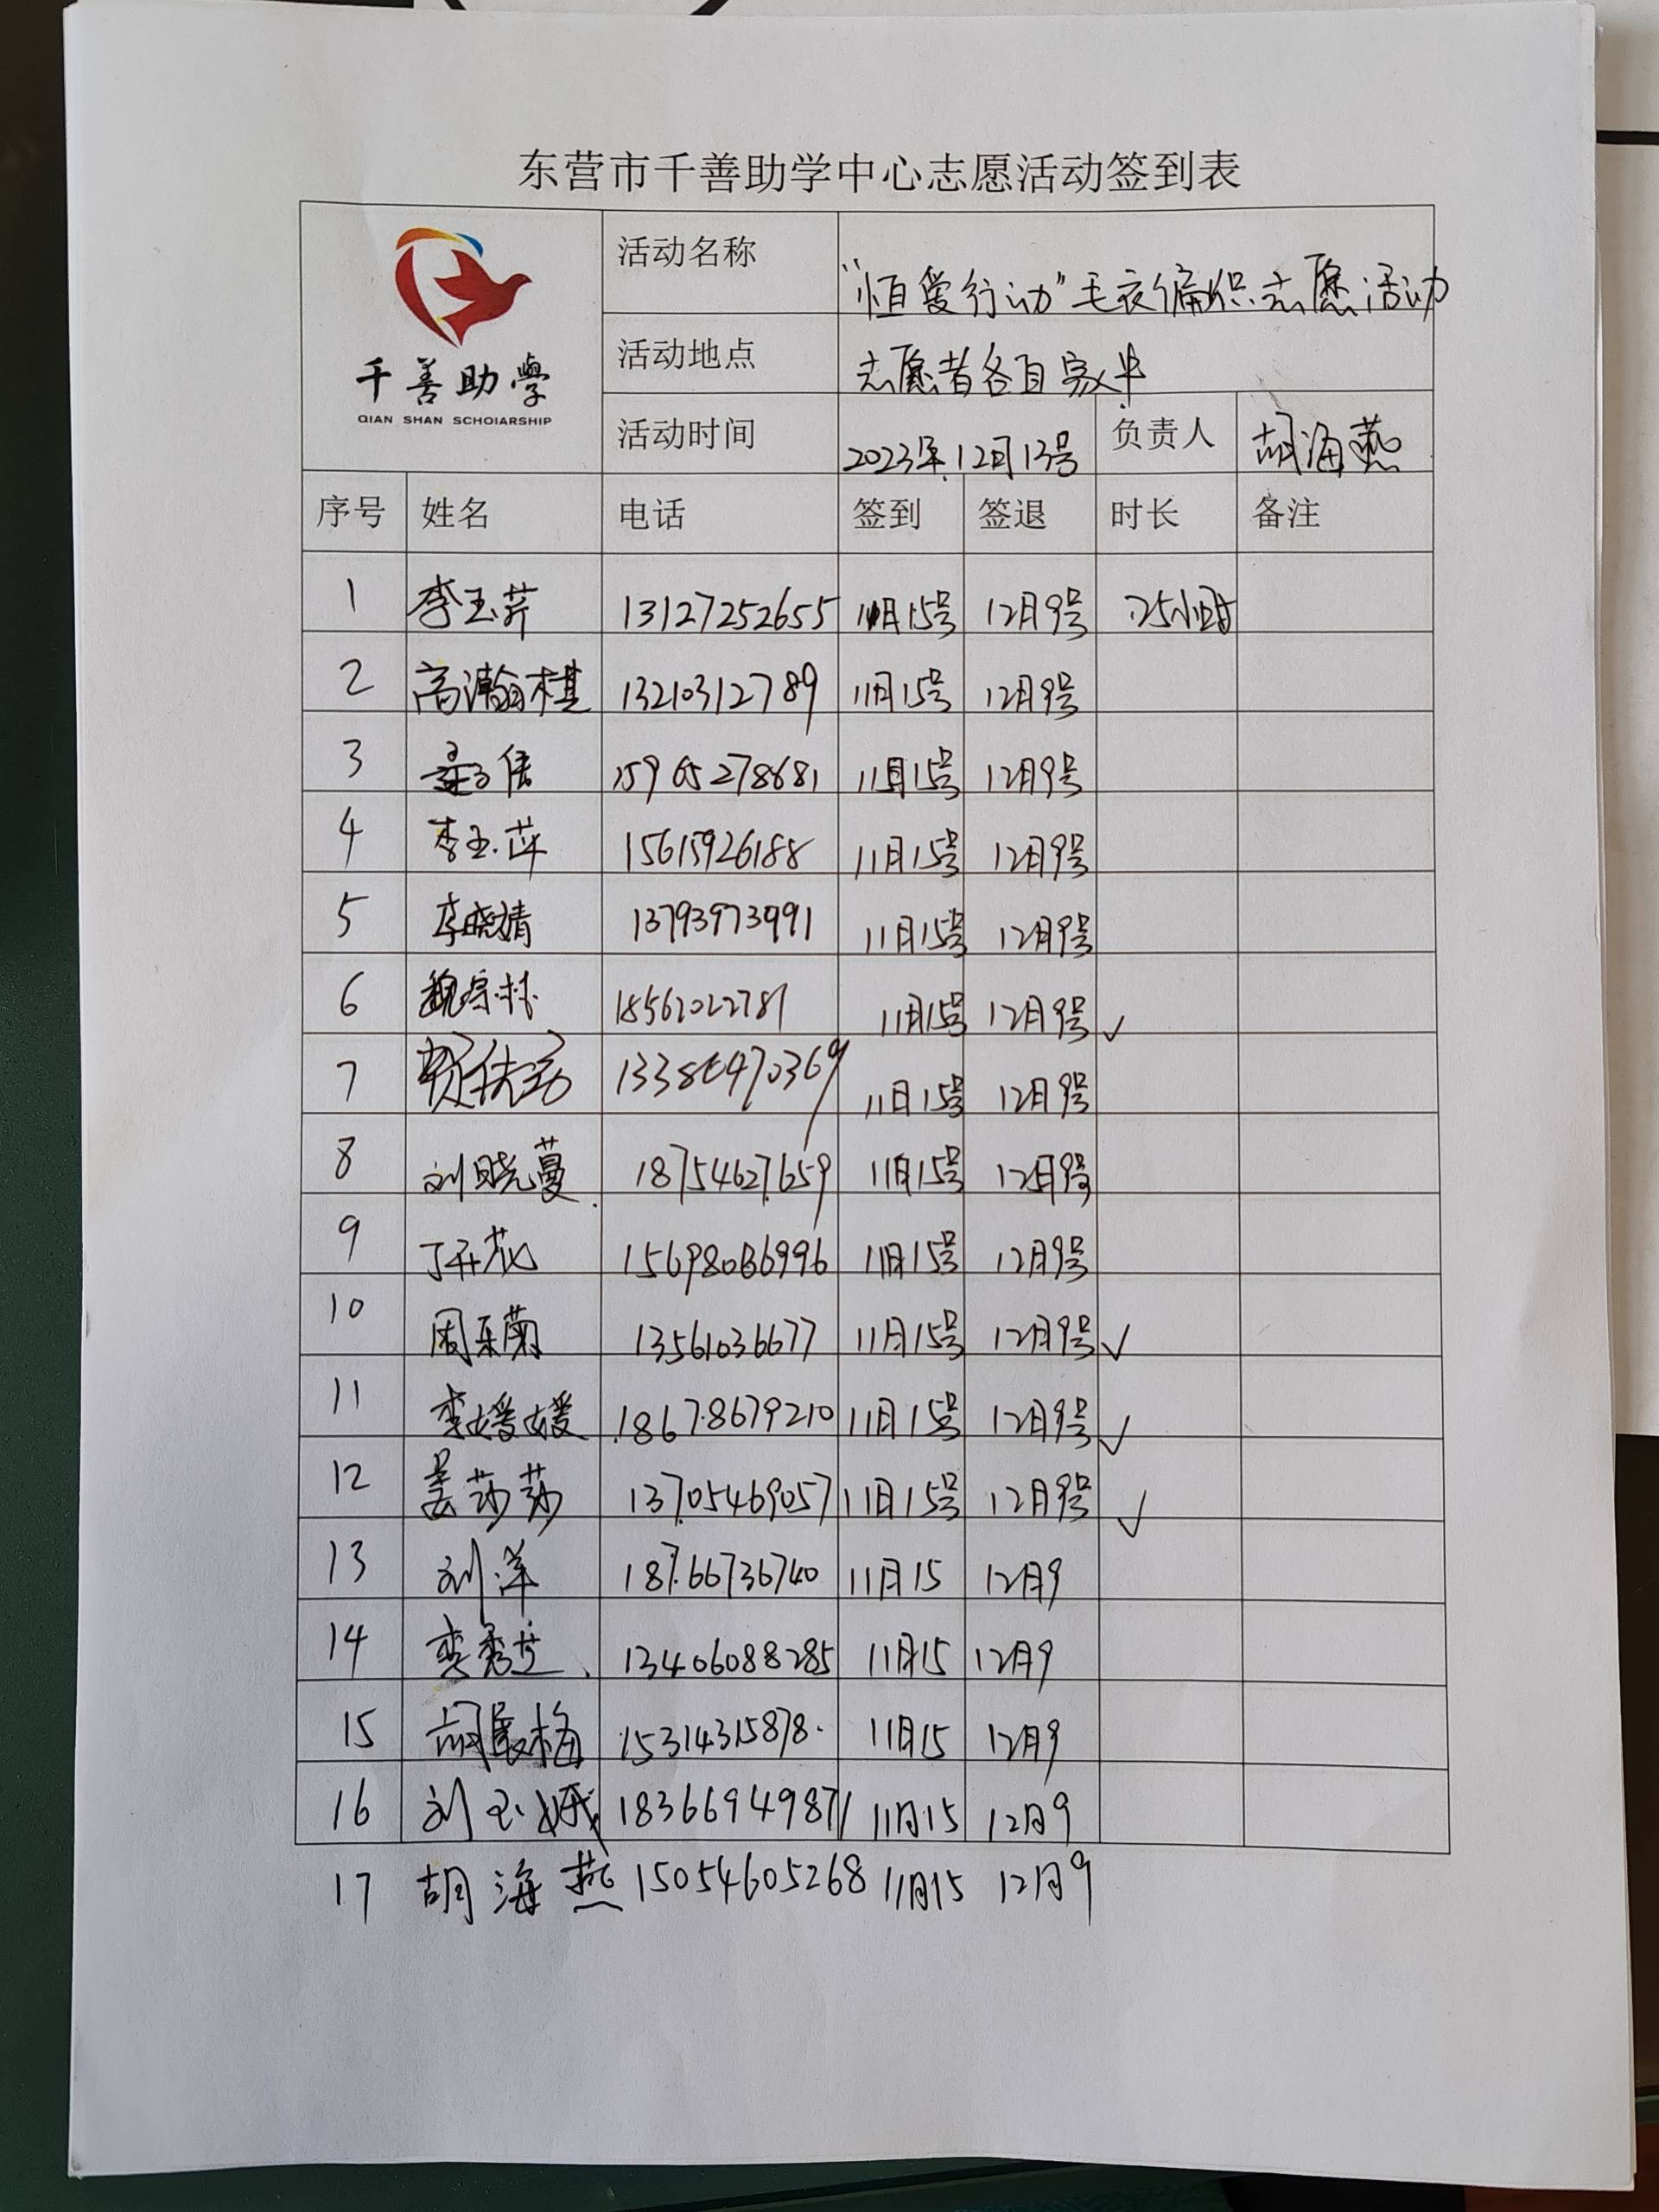 东营市千善助学中心志愿活动签到表
千善助學
QIAN SHAN SCHOIARSHIP
活动名称 “恒爱行动”毛衣编织志愿活动
活动地点 志愿者各自家中
活动时间 2023年12月13号 负责人 胡海燕
序号 姓名 电话 签到 签退 时长 备注
1 李玉芹 13127252655 11月15号 12月9号 25小时
2 高瀚棋 13210312789 11月15号 12月9号
3 15965278681 11月15号 12月9号
4 李玉萍 15615926188 11月15号 12月9号
5 李晓婧 13793973991 11月15号 12月9号
6 魏宗林 18562022781 11月15号 12月9号 ✓
7 11月15号 12月9号
8 刘晓蔓 18754627659 11月15号 12月9号
9 丁开花 11月15号 12月9号
10 周乐菊 13561036677 11月15号 12月9号 ✓
11 李媛媛 18678679210 11月15号 12月9号 ✓
12 姜莎莎 13705469057 11月15号 12月9号 ✓
13 刘洋 18766736740 11月15 12月9
14 秀芝 13406088285 11月15 12月9
15 胡梅 15314315878 11月15 12月9
16 刘玉娥 18366949871 11月15 12月9
17 胡海燕 15054605268 11月15 12月9